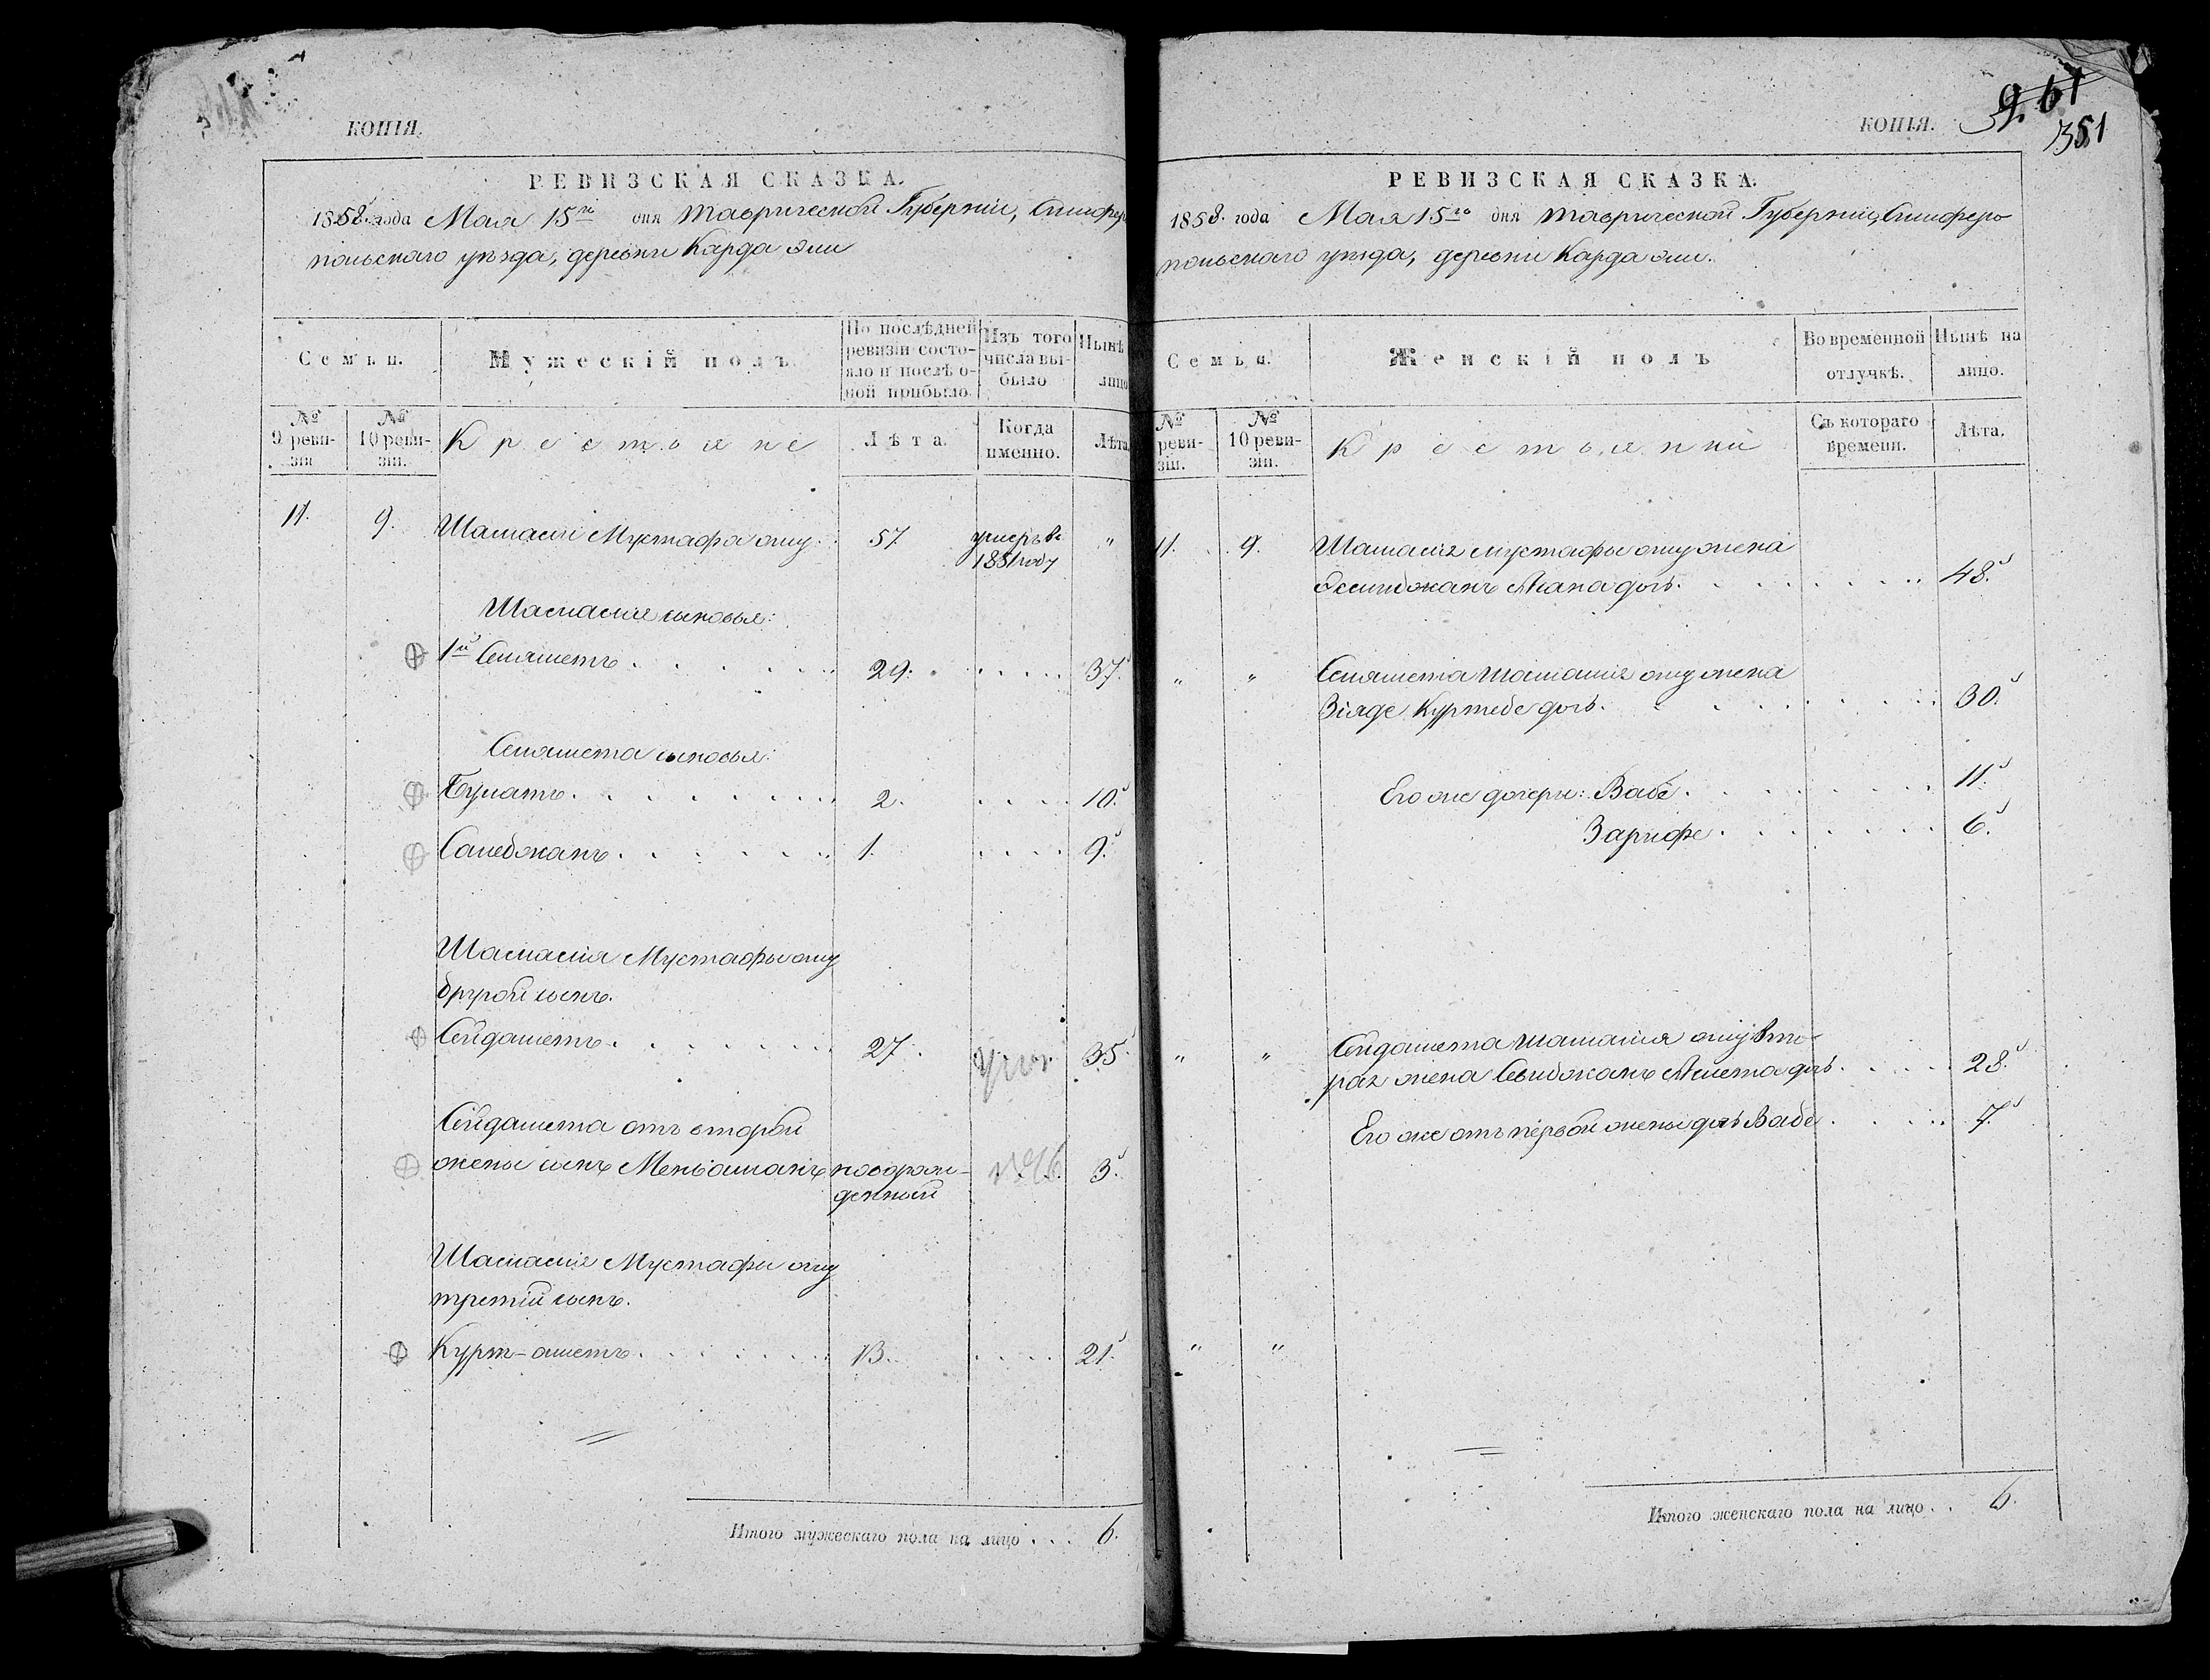 КОПІЯ.
РЕВИЗСКАЯ СКАЗКА.
1858 года Мая 15го дня Таврической Губерніи, Симферо
польскаго уѣзда, деревни Карда эли
Семьи.
Мужескій полъ.
По послѣдней
ревизіи состо-
яло и послѣ о-
ной прибыло.
Изъ того
числа вы-
было
Нынѣ
лицо
№
9 реви-
зіи
№
10 реви-
зіи.
Крестьяне
Лѣта.
Когда
именно.
Лѣта
11. 9. Мустафа оглу 57 умеръ въ "
году
сыновья:
1й 29. 37.
сыновья:
Булатъ 2. 10.
1. 9.
Мустафы оглу
другой сынъ.
Сейдаметъ 27. 35.
Сейдамета отъ второй
жены сынъ новорож-
денный 3.
Мустафы оглу
третій сынъ.
Курт-аметъ 13. 21.
Итого мужескаго пола на лицо . . . 6.
КОПІЯ.
261
351
РЕВИЗСКАЯ СКАЗКА.
1858. года Мая 15го дня Таврической Губерніи, Симферо
польскаго уѣзда, деревни Карда эли.
Семьи.
Женскій полъ
Во временной
отлучкѣ.
Нынѣ на
лицо.
№
реви-
зіи.
№
10 реви-
зіи.
Крестьянки
Съ котораго
времени.
Лѣта.
11. 9. мустафы оглу жена
дочь. 48.
" " оглу жена
Зіяде дочь. 30.
Его же дочери: Вабе 11.
Зарифе 6.
" " Сейдамета оглу вто-
рая жена Амета дочь 28.
Его же отъ первой жены дочь Вабе 7.
" "
Итого женскаго пола на лицо . . 6.